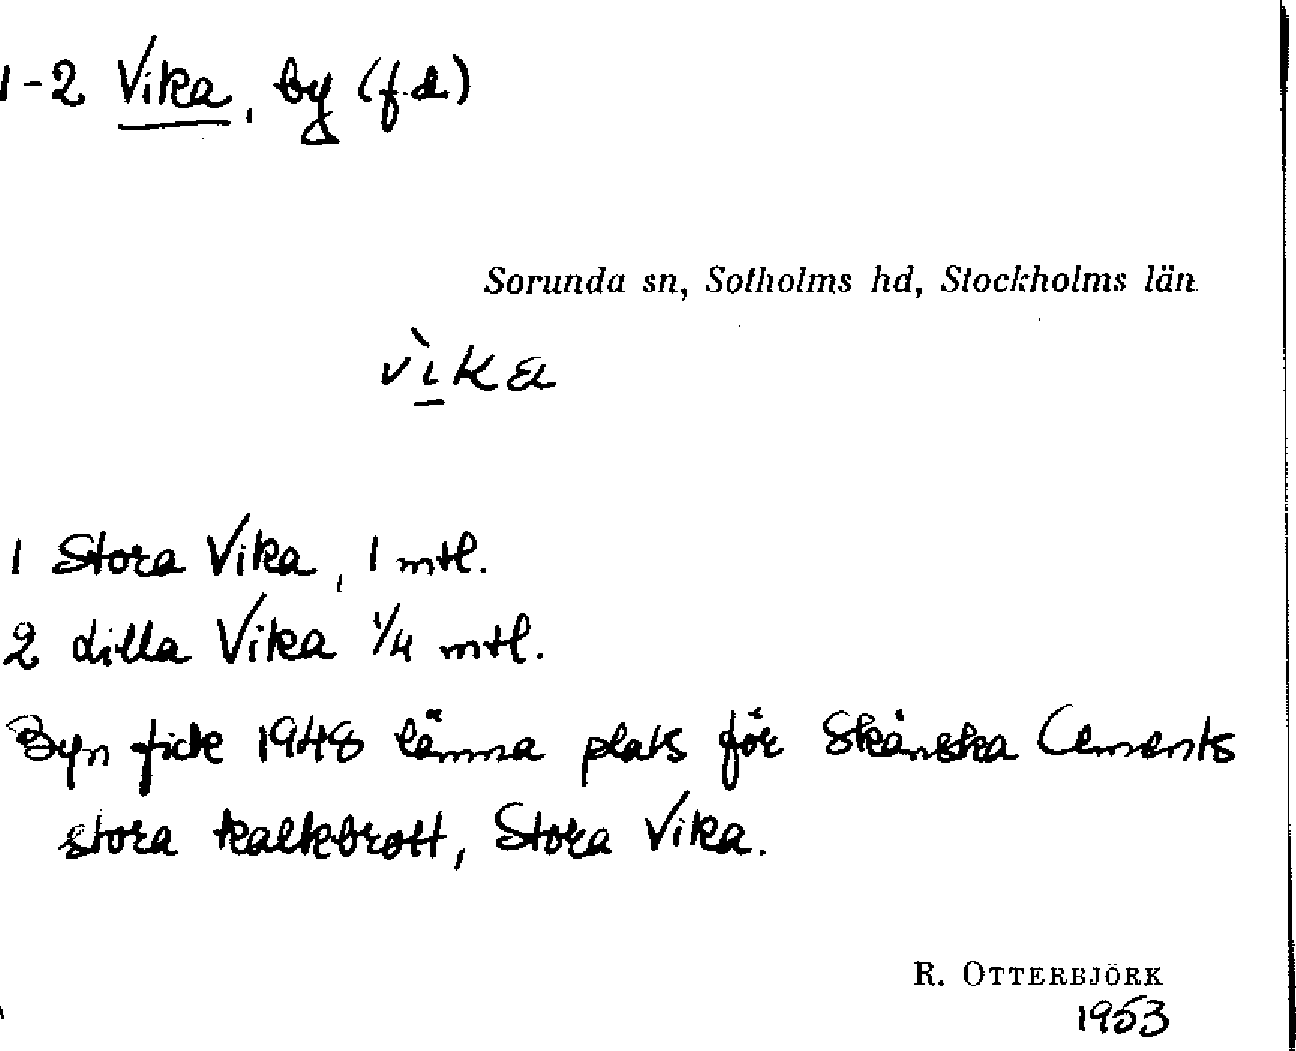 1-2 Vika, by (f.d)
Sorunda sn, Sotholms hd, Stockholms län
vìka
1 Stora Vika, 1 mtl.
2 Lilla Vika 1/4 mtl.
Byn fick 1948 lämna plats för Skånska Cements
stora kalkbrott, Stora Vika.
R. OTTERBJÖRK
1953